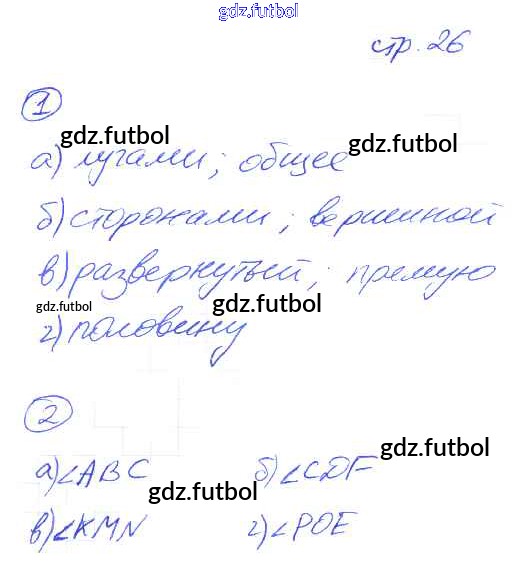 gdz.futbol
стр. 26
1
gdz.futbol
а) лучами; общее
gdz.futbol
б) сторонами; вершиной
в) развернутый; прямую
gdz.futbol
gdz.futbol
г) половину
2
gdz.futbol
а) ∠ABC б) ∠CDF
gdz.futbol
в) ∠KMN г) ∠POE